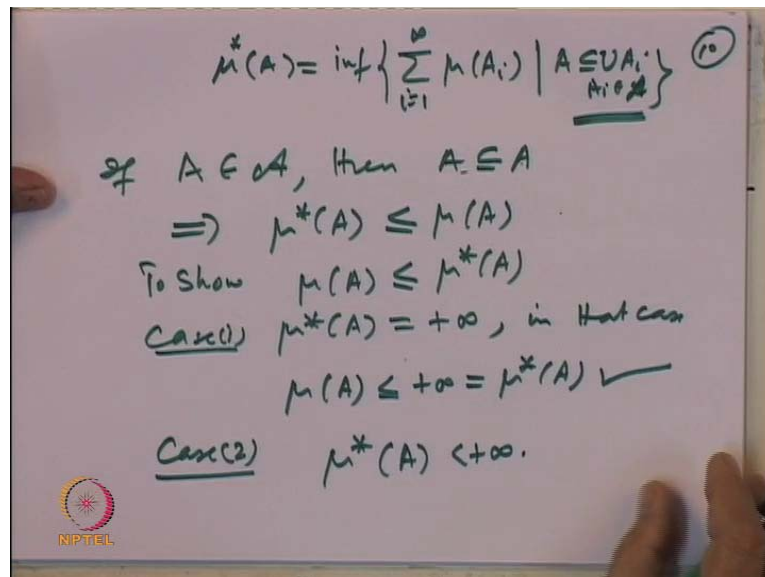 μ*(A) = inf { ∑_{i=1}^{∞} μ(A_i) | A ⊆ ∪A_i, A_i ∈ 𝒜 } 10
If A ∈ 𝒜, then A ⊆ A
⇒ μ*(A) ≤ μ(A)
To show μ(A) ≤ μ*(A)
Case(1) μ*(A) = +∞, in that case
μ(A) ≤ +∞ = μ*(A) ✓
Case(2) μ*(A) <+∞.
NPTEL